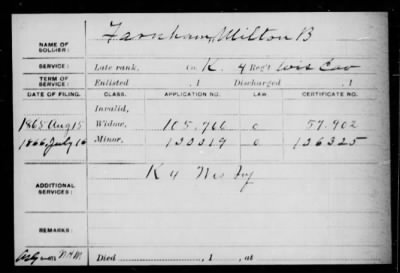 NAME OF SOLDIER: Farnham, Milton B
SERVICE: Late rank, Co. K, 4 Reg't Wis Cav
TERM OF SERVICE: Enlisted , 1 Discharged , 1
DATE OF FILING. CLASS. APPLICATION NO. LAW. CERTIFICATE NO.
Invalid,
1865 Aug 15 Widow, 105,766 c 57,902
1866, July 16 Minor, 133319 c 136325
ADDITIONAL SERVICES: K 4 Wis Inf
REMARKS:
N.H.M. Died , 1 , at